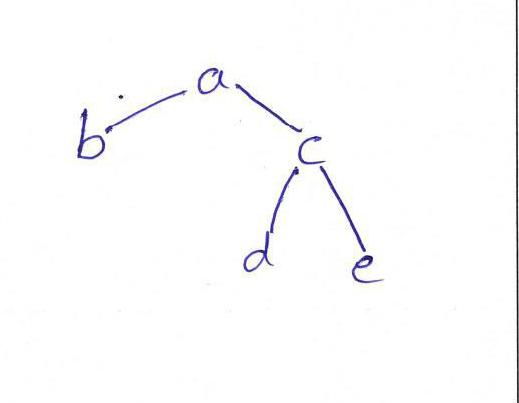 a
b
c
d e